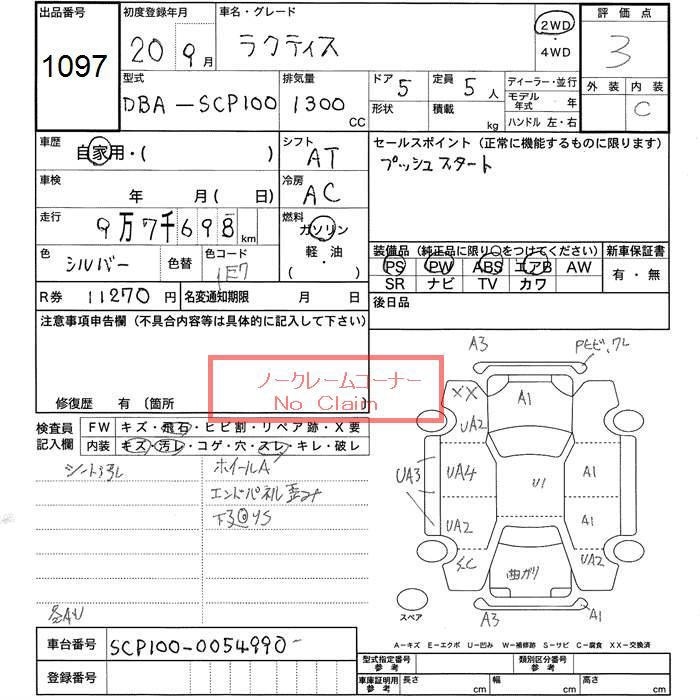 出品番号
1097
初度登録年月
20 9月
車名・グレード
ラクティス
2WD
・
4WD
評価点
3
外装 内装
C
型式
DBA-SCP100
排気量
1300
CC
ドア 5
形状
定員 5人
積載
kg
ディーラー・並行
モデル年式 年
ハンドル 左・右
車歴
自家用・( )
シフト
AT
セールスポイント (正常に機能するものに限ります)
プッシュスタート
車検
年 月 ( 日)
冷房
AC
走行
9万7千698km
燃料
ガソリン
軽・油
( ・ )
色
シルバー
色替
色コード
1E7
装備品 (純正品に限り○をつけてください)
新車保証書
PS PW ABS エアB AW
SR ナビ TV カワ
有・無
R券 11270円
名変通知期限 月 日
後日品
注意事項申告欄 (不具合内容等は具体的に記入して下さい)
ノークレームコーナー
No Claim
修復歴 有 〔箇所
検査員
記入欄
FW キズ・飛石・ヒビ割・リペア跡・X要
内装 キズ・汚レ・コゲ・穴・スレ・キレ・破レ
ホイールA
エンドパネル歪み
A3
XX
A1
UA2
UA3
UA4
U1
A1
UA2
A1
曲ガリ
UA2
A3
A1
スペア
A-キズ E-エクボ U-凹み W-補修跡 S-サビ C-腐食 XX-交換済
車台番号
SCP100-0054990
登録番号
型式指定番号
参考
類別区分番号
参考
車庫証明用
参考
長さ cm
幅 cm
高さ cm